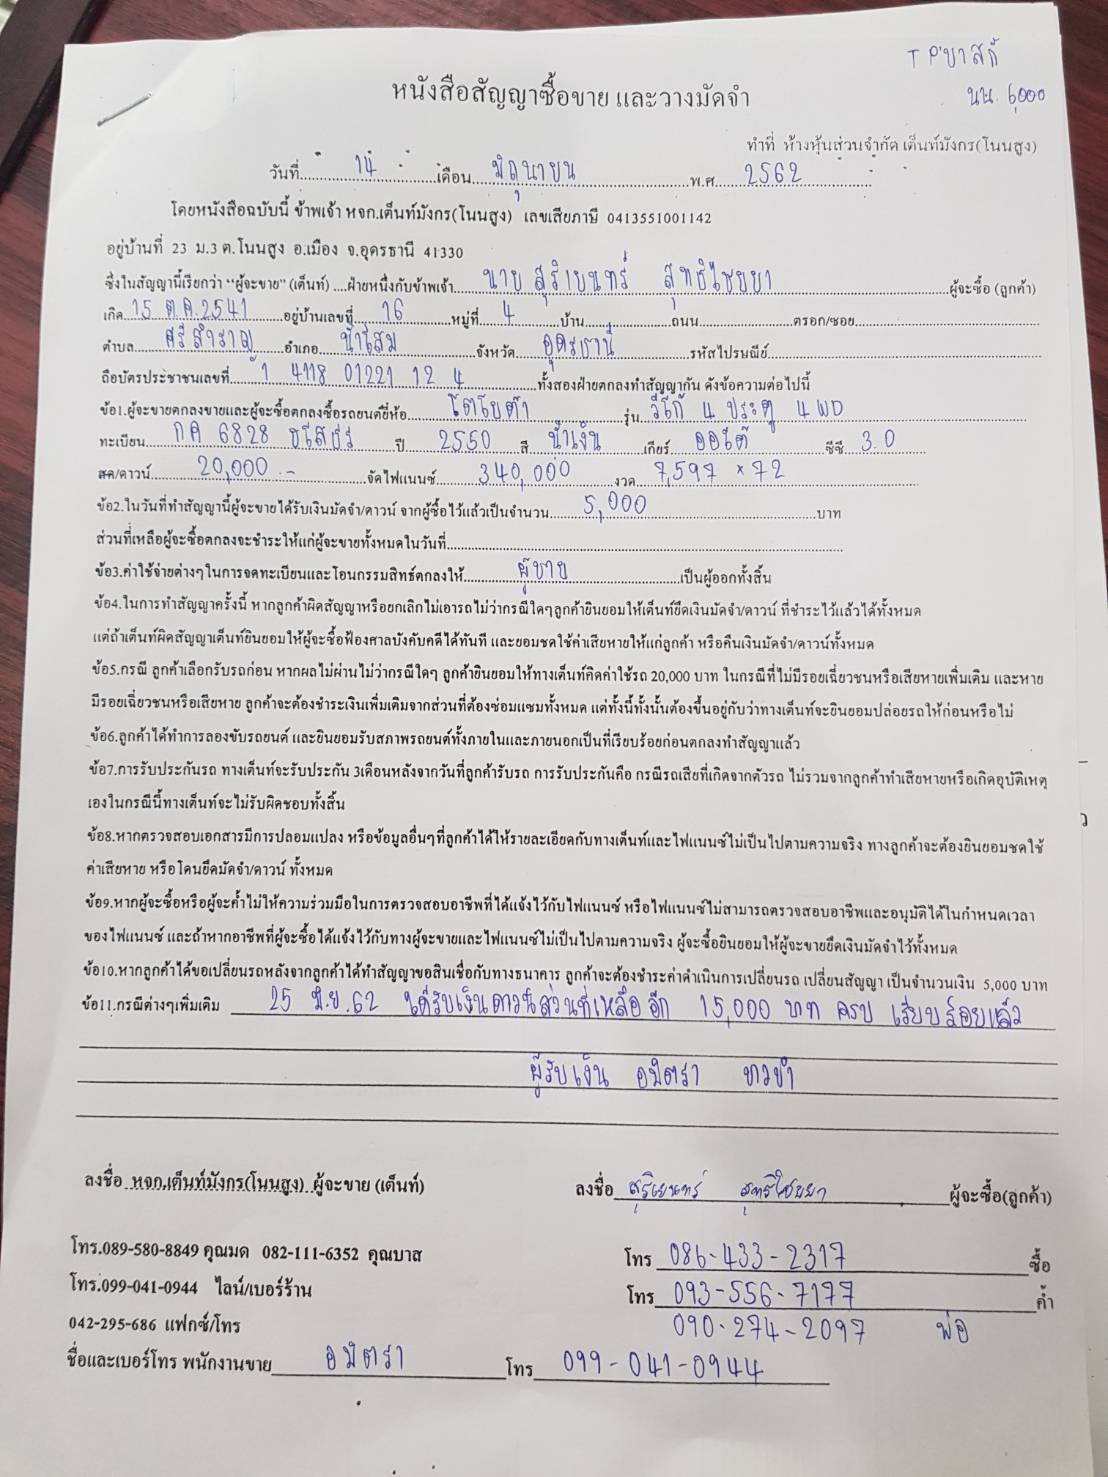 T P'บาสก์
นน. 6,000
หนังสือสัญญาซื้อขาย และวางมัดจำ
ทำที่ ห้างหุ้นส่วนจำกัด เต็นท์มังกร(โนนสูง)
วันที่ 14 เดือน มิถุนายน พ.ศ 2562
โดยหนังสือฉบับนี้ ข้าพเจ้า หจก.เต็นท์มังกร(โนนสูง) เลขเสียภาษี 0413551001142
อยู่บ้านที่ 23 ม.3 ต.โนนสูง อ.เมือง จ.อุดรธานี 41330
ซึ่งในสัญญานี้เรียกว่า "ผู้จะขาย" (เต็นท์) ....ฝ่ายหนึ่งกับข้าพเจ้า นาย สุริเยนทร์ สุทธิไชยยา ผู้จะซื้อ (ลูกค้า)
เกิด 15 ต.ค. 2541 อยู่บ้านเลขที่ 16 หมู่ที่ 4 บ้าน ถนน ตรอก/ซอย
ตำบล ศรีสำราญ อำเภอ น้ำโสม จังหวัด อุดรธานี รหัสไปรษณีย์
ถือบัตรประชาชนเลขที่ 1 4118 01221 12 4 ทั้งสองฝ่ายตกลงทำสัญญากัน ดังข้อความต่อไปนี้
ข้อ1.ผู้จะขายตกลงขายและผู้จะซื้อตกลงซื้อรถยนต์ยี่ห้อ โตโยต้า รุ่น วีโก้ 4 ประตู 4WD
ทะเบียน กค 6828 ยโสธร ปี 2550 สี น้ำเงิน เกียร์ ออโต้ ซีซี 3.0
สด/ดาวน์ 20,000 .- จัดไฟแนนซ์ 340,000 งวด 7,597 × 72
ข้อ2.ในวันที่ทำสัญญานี้ผู้จะขายได้รับเงินมัดจำ/ดาวน์ จากผู้ซื้อไว้แล้วเป็นจำนวน 5,000 บาท
ส่วนที่เหลือผู้จะซื้อตกลงจะชำระให้แก่ผู้จะขายทั้งหมดในวันที่
ข้อ3.ค่าใช้จ่ายต่างๆในการจดทะเบียนและโอนกรรมสิทธ์ตกลงให้ ผู้ขาย เป็นผู้ออกทั้งสิ้น
ข้อ4.ในการทำสัญญาครั้งนี้ หากลูกค้าผิดสัญญาหรือยกเลิกไม่เอารถไม่ว่ากรณีใดๆลูกค้ายินยอมให้เต็นท์ยึดเงินมัดจำ/ดาวน์ ที่ชำระไว้แล้วได้ทั้งหมด
แต่ถ้าเต็นท์ผิดสัญญาเต็นท์ยินยอมให้ผู้จะซื้อฟ้องศาลบังคับคดีได้ทันที และยอมชดใช้ค่าเสียหายให้แก่ลูกค้า หรือคืนเงินมัดจำ/ดาวน์ทั้งหมด
ข้อ5.กรณี ลูกค้าเลือกรับรถก่อน หากผลไม่ผ่านไม่ว่ากรณีใดๆ ลูกค้ายินยอมให้ทางเต็นท์คิดค่าใช้รถ 20,000 บาท ในกรณีที่ไม่มีรอยเฉี่ยวชนหรือเสียหายเพิ่มเติม และหาย
มีรอยเฉี่ยวชนหรือเสียหาย ลูกค้าจะต้องชำระเงินเพิ่มเติมจากส่วนที่ต้องซ่อมแซมทั้งหมด แต่ทั้งนี้ทั้งนั้นต้องขึ้นอยู่กับว่าทางเต็นท์จะยินยอมปล่อยรถให้ก่อนหรือไม่
ข้อ6.ลูกค้าได้ทำการลองขับรถยนต์ และยินยอมรับสภาพรถยนต์ทั้งภายในและภายนอกเป็นที่เรียบร้อยก่อนตกลงทำสัญญาแล้ว
ข้อ7.การรับประกันรถ ทางเต็นท์จะรับประกัน 3เดือนหลังจากวันที่ลูกค้ารับรถ การรับประกันคือ กรณีรถเสียที่เกิดจากตัวรถ ไม่รวมจากลูกค้าทำเสียหายหรือเกิดอุบัติเหตุ
เองในกรณีนี้ทางเต็นท์จะไม่รับผิดชอบทั้งสิ้น
ข้อ8.หากตรวจสอบเอกสารมีการปลอมแปลง หรือข้อมูลอื่นๆที่ลูกค้าได้ให้รายละเอียดกับทางเต็นท์และไฟแนนซ์ไม่เป็นไปตามความจริง ทางลูกค้าจะต้องยินยอมชดใช้
ค่าเสียหาย หรือโดนยึดมัดจำ/ดาวน์ ทั้งหมด
ข้อ9.หากผู้จะซื้อหรือผู้จะค้ำไม่ให้ความร่วมมือในการตรวจสอบอาชีพที่ได้แจ้งไว้กับไฟแนนซ์ หรือไฟแนนซ์ไม่สามารถตรวจสอบอาชีพและอนุมัติได้ในกำหนดเวลา
ของไฟแนนซ์ และถ้าหากอาชีพที่ผู้จะซื้อได้แจ้งไว้กับทางผู้จะขายและไฟแนนซ์ไม่เป็นไปตามความจริง ผู้จะซื้อยินยอมให้ผู้จะขายยึดเงินมัดจำไว้ทั้งหมด
ข้อ10.หากลูกค้าได้ขอเปลี่ยนรถหลังจากลูกค้าได้ทำสัญญาขอสินเชื่อกับทางธนาคาร ลูกค้าจะต้องชำระค่าดำเนินการเปลี่ยนรถ เปลี่ยนสัญญา เป็นจำนวนเงิน 5,000 บาท
ข้อ11.กรณีต่างๆเพิ่มเติม 25 มิ.ย. 62 ได้รับเงินดาวน์ส่วนที่เหลือ อีก 15,000 บาท ครบ เรียบร้อยแล้ว
ผู้รับเงิน อมิตรา
ลงชื่อ หจก.เต็นท์มังกร(โนนสูง) ผู้จะขาย (เต็นท์)
ลงชื่อ สุริเยนทร์ สุทธิไชยยา ผู้จะซื้อ(ลูกค้า)
โทร.089-580-8849 คุณมด 082-111-6352 คุณบาส
โทร 086-433-2317 ซื้อ
โทร.099-041-0944 ไลน์/เบอร์ร้าน
โทร 093-556-7177 ค้ำ
042-295-686 แฟกซ์/โทร
090-274-2097 พ่อ
ชื่อและเบอร์โทร พนักงานขาย อมิตรา โทร 099-041-0944